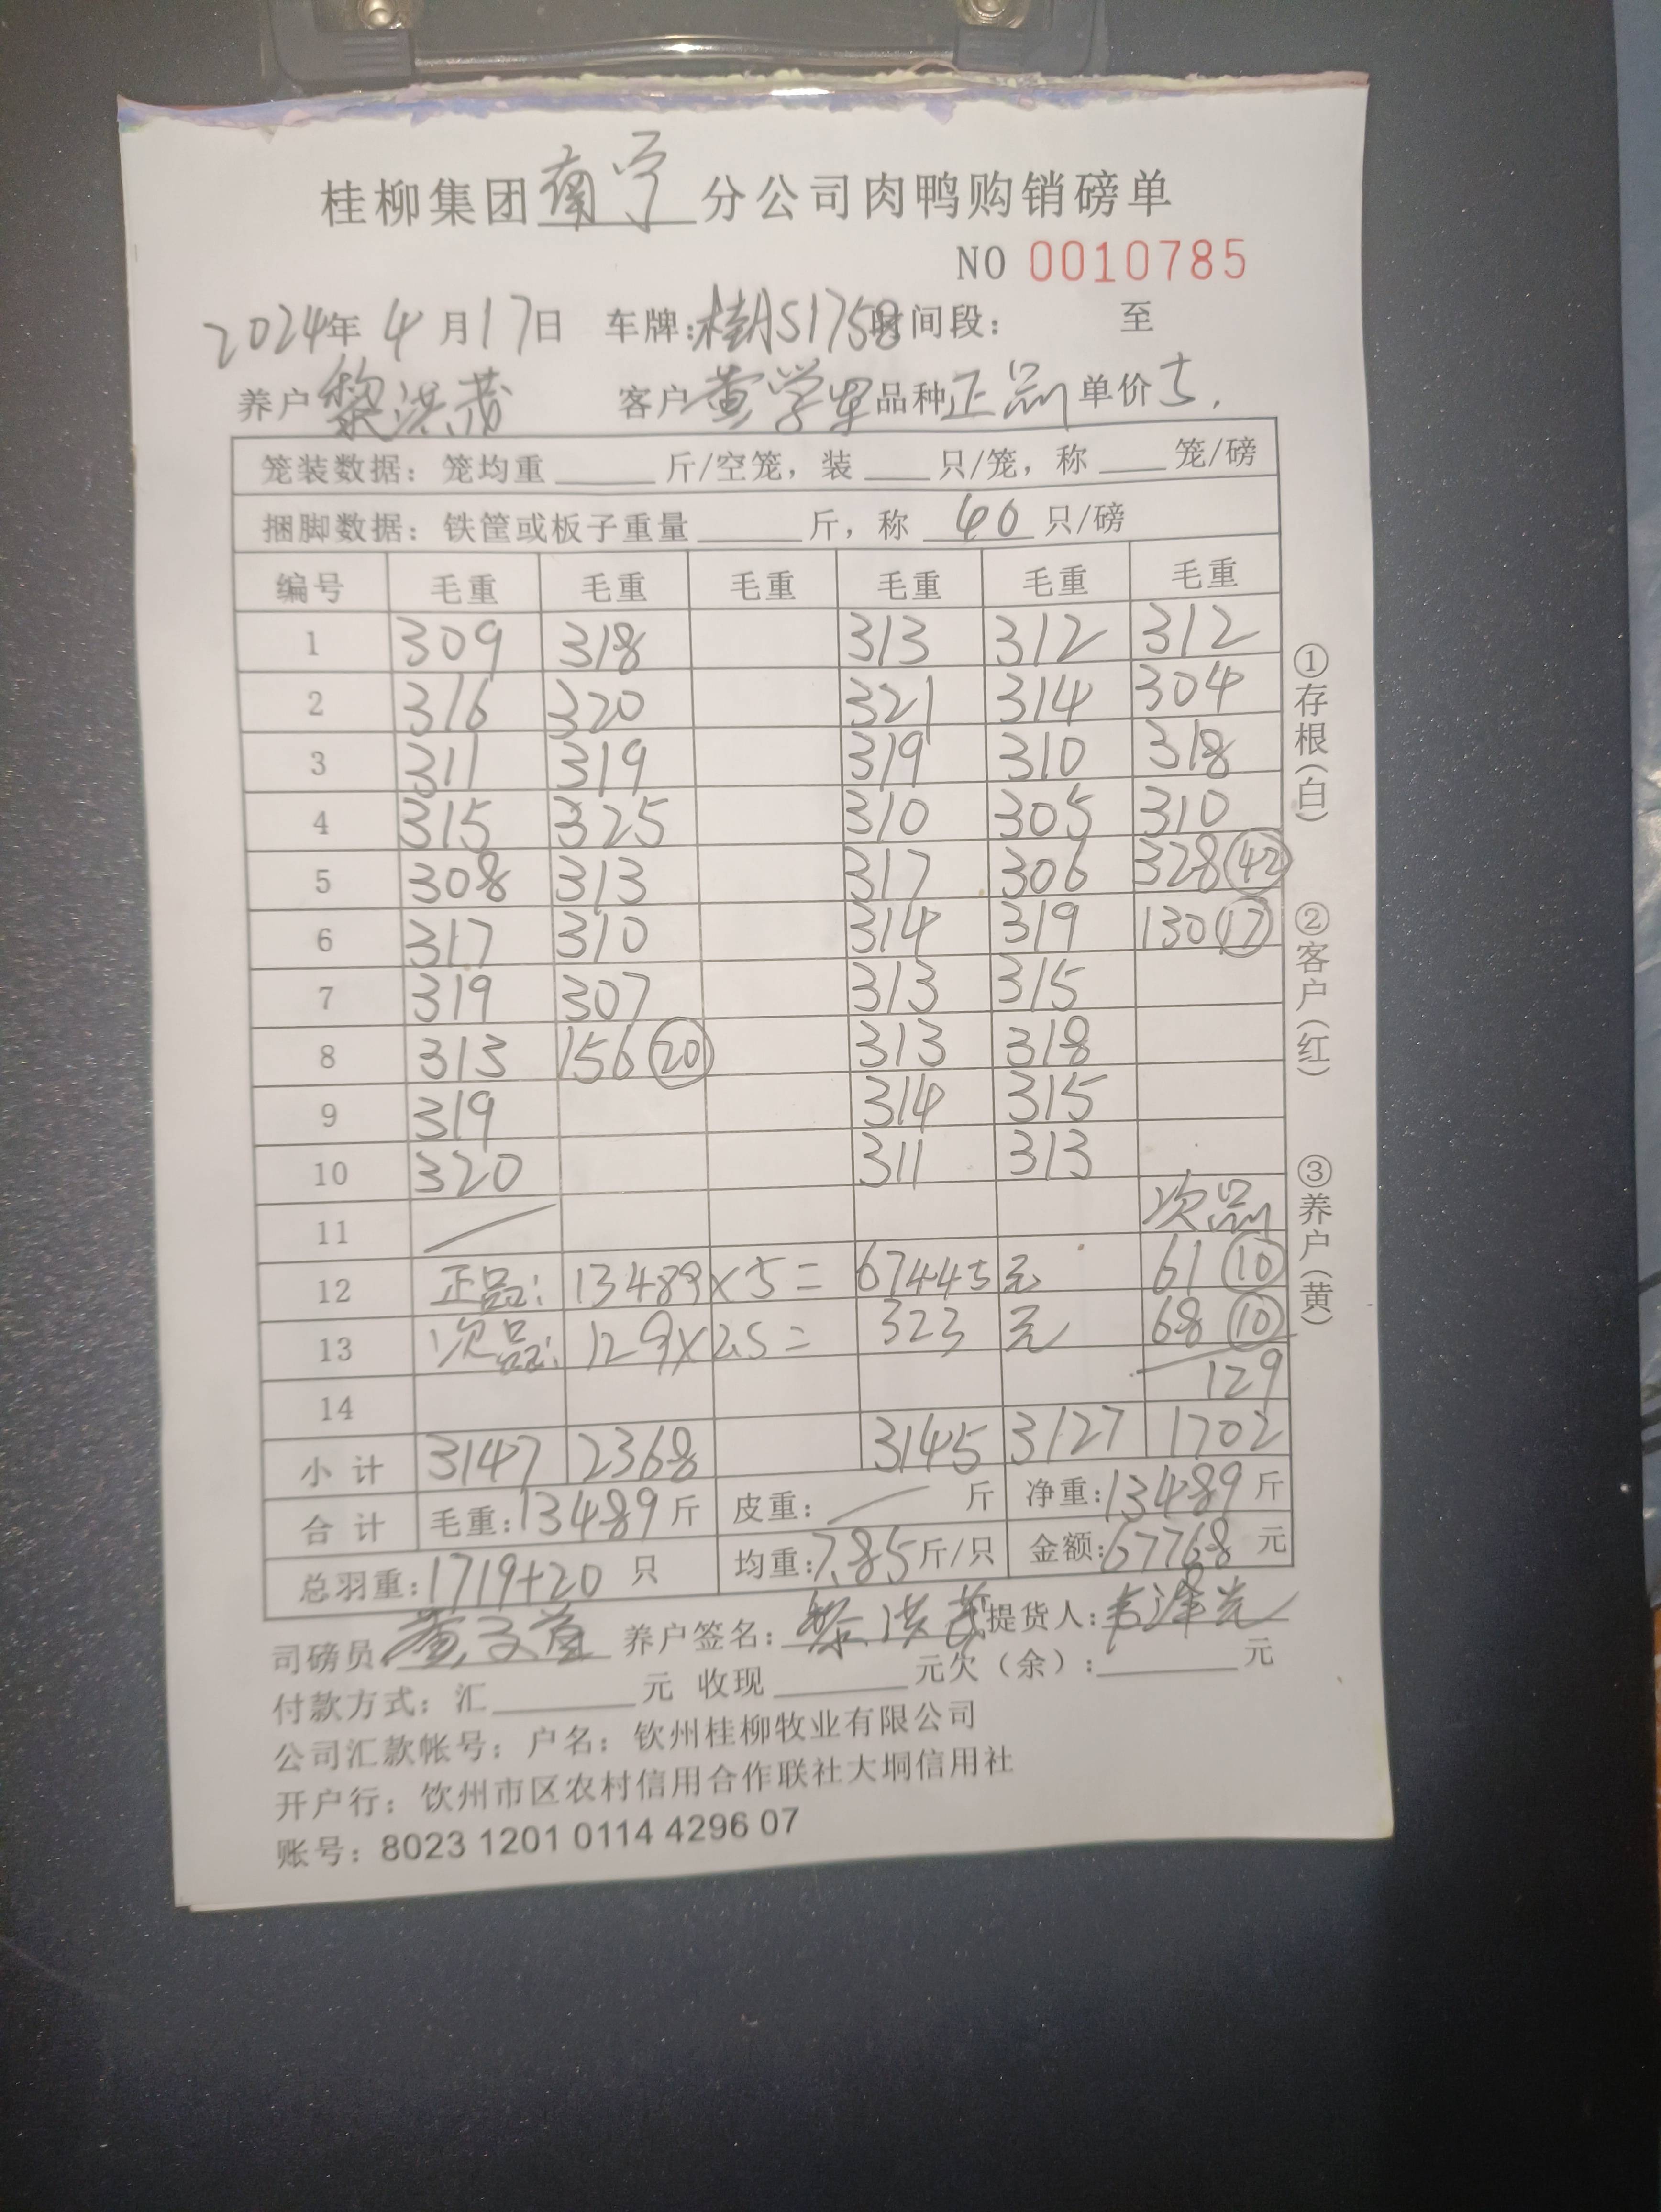 桂柳集团南宁分公司肉鸭购销磅单
NO 0010785
2024年 4月17日 车牌:桂AS1758时间段: 至
养户黎洪茂 客户黄学军品种正品 单价5.
笼装数据: 笼均重____斤/空笼, 装___只/笼, 称___笼/磅
捆脚数据: 铁筐或板子重量____斤, 称 40 只/磅
编号 毛重 毛重 毛重 毛重 毛重 毛重
1 309 318 313 312 312
2 316 320 321 314 304
3 311 319 319 310 318
4 315 325 310 305 310
5 308 313 317 306 328 (42)
6 317 310 314 319 130 (17)
7 319 307 313 315
8 313 156 (20) 313 318
9 319 314 315
10 320 311 313
11 / 次品
12 正品: 13489×5= 67445元 61 (10)
13 次品: 129×2.5= 323元 68 (10)
14 129
小计 3147 2368 3145 3127 1702
合计 毛重:13489斤 皮重: / 斤 净重:13489斤
总羽重:1719+20 只 均重:7.85斤/只 金额:67768 元
司磅员: 养户签名:黎洪茂 提货人:韦泽光
付款方式: 汇____元 收现____元欠(余):____元
公司汇款帐号: 户名: 钦州桂柳牧业有限公司
开户行: 饮州市区农村信用合作联社大垌信用社
账号: 8023 1201 0114 4296 07
①存根(白)
②客户(红)
③养户(黄)